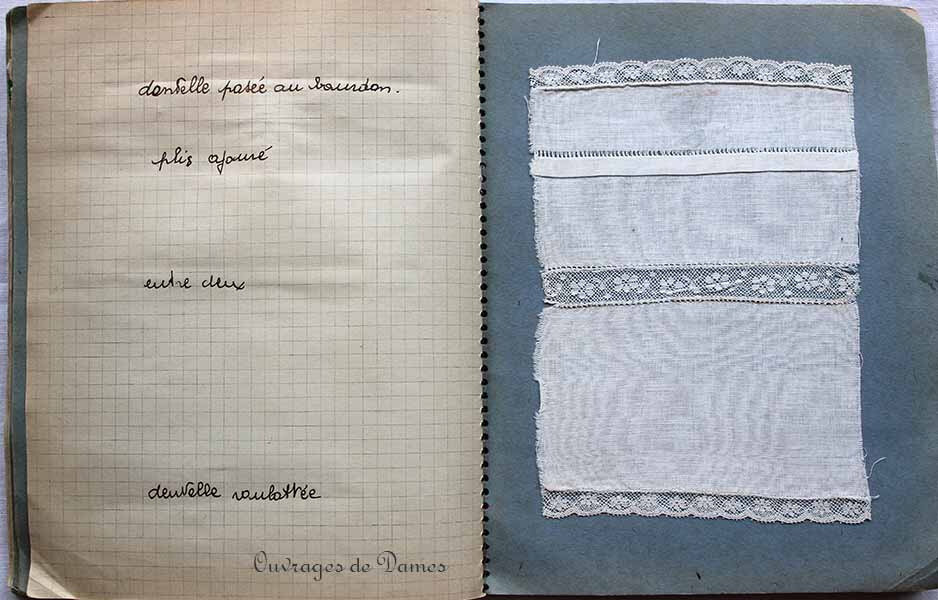 dentelle posée au bourdon.
plis ajouré
entre deux
dentelle roulottée
Ouvrages de Dames